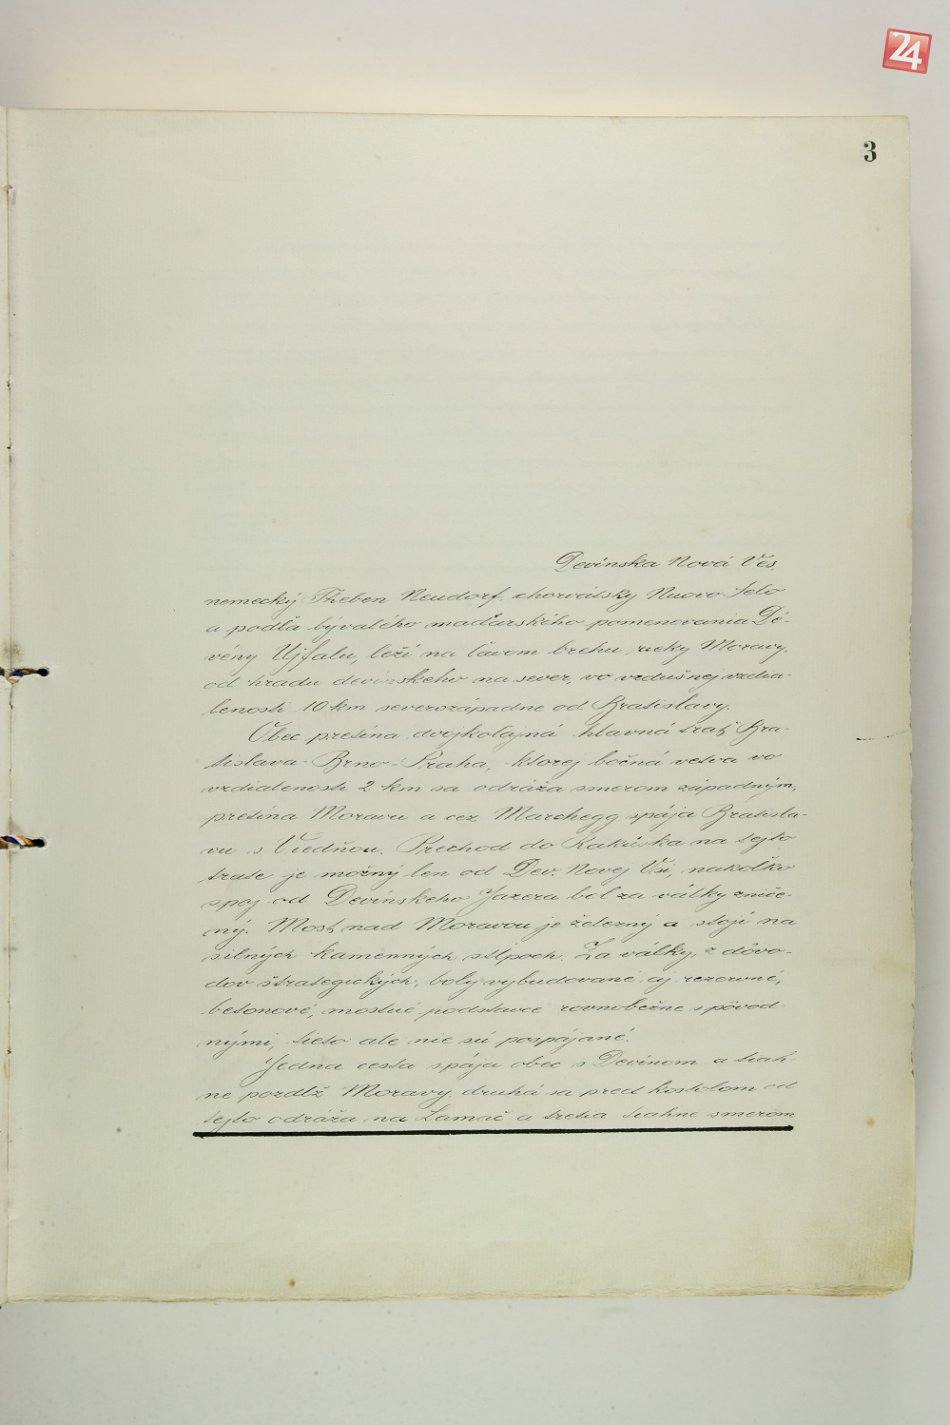 24
3
Devínska Nová Ves,
nemecký Theben Neudorf, chorvátsky Nuovo Selo
a podľa bývalého maďarského pomenovania Dé-
vény Ujfalu, leží na ľavom brehu rieky Moravy,
od hradu devínskeho na sever, vo vzdušnej vzdia-
lenosti 10 km severozápadne od Bratislavy.
Obec pretína dvojkoľajná hlavná trať Bra-
tislava - Brno - Praha, ktorej bočná vetva vo
vzdialenosti 2 km sa odráža smerom západným,
pretína Moravu a cez Marchegg spája Bratisla-
vu s Viedňou. Prechod do Rakúska na tejto
trase je možný len od Dev. Novej Vsi, nakoľko
spoj od Devínskeho Jazera bol za války zniče-
ný. Most nad Moravou je železný a stojí na
silných kamenných stĺpoch. Za války, z dôvo-
dov štrategických, boly vybudované aj rezervné,
betonové, mostné podstavce rovnobežne s pôvod-
nými, tieto ale nie sú pospájané.
Jedna cesta spája obec s Devínom a tiah-
ne pozdlž Moravy, druhá sa pred kostolom od
tejto odráža na Lamač a tretia tiahne smerom